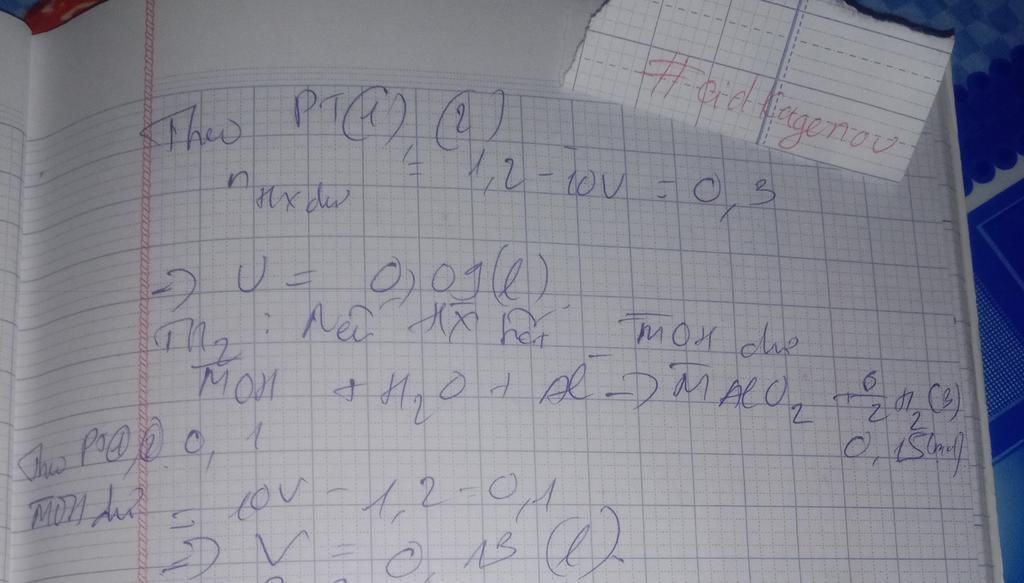 #eidkagenou
Theo PT(1), (2)
n HX dư = 1,2 - 10V = 0,3
=> V = 0,09(l)
TH2 : Nếu HX hết MOH dư
MOH + H2O + Al -> MAlO2 + 3/2 H2 (3)
0,1 0,15(mol)
Theo PT(1),(2)
MOH dư = 10V - 1,2 = 0,1
=> V = 0,13 (l).